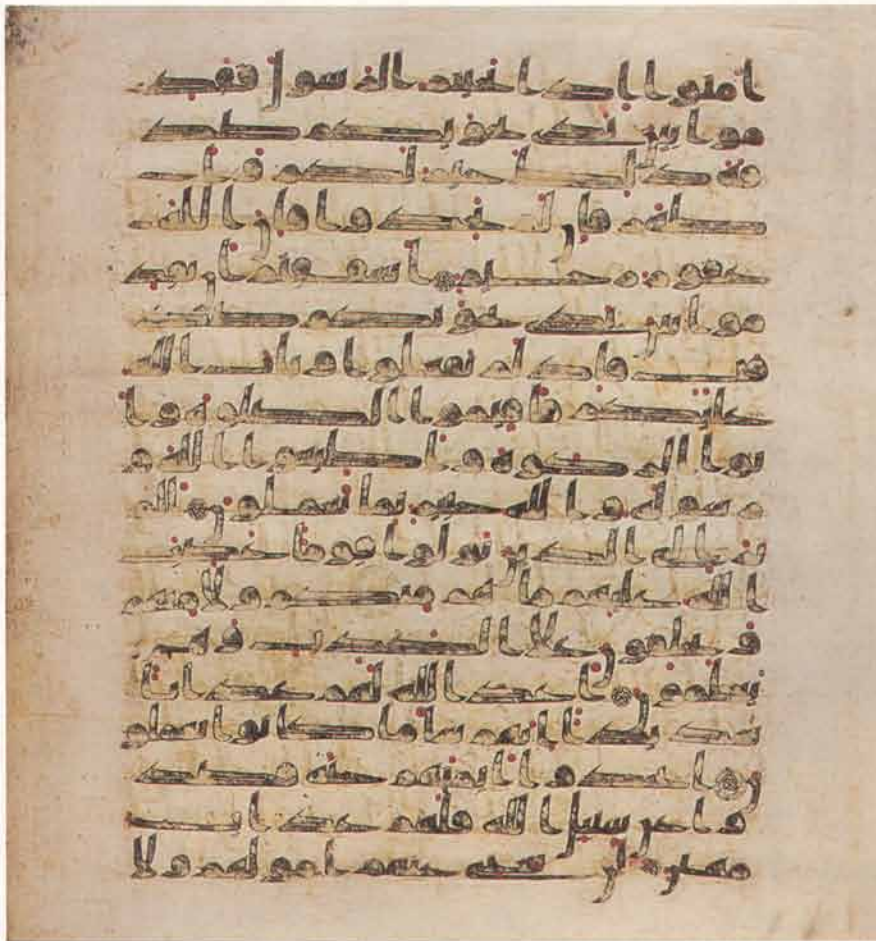 امنوا اذا نجيتم الرسول فقد
موا بين يدي نجويكم صد
قة ذلك خير لكم وا
طهر فان لم تجدوا فان الله
غفور رحيم اشفقتم ان تقد
موا بين يدي نجويكم صد
قت فاذ لم تفعلوا وتاب الله
عليكم فاقيموا الصلوة وا
توا الزكوة واطيعوا الله و
رسوله والله خبير بما تعملون الم
تر الى الذين تولوا قوما غضب
الله عليهم ما هم منكم ولا منهم
ويحلفون على الكذب وهم
يعلمون اعد الله لهم عذابا
شديدا انهم سا ما كانوا يعملو
ن اتخذوا ايمنهم جنة فصد
وا عن سبيل الله فلهم عذاب
مهين لن تغني عنهم امولهم ولا